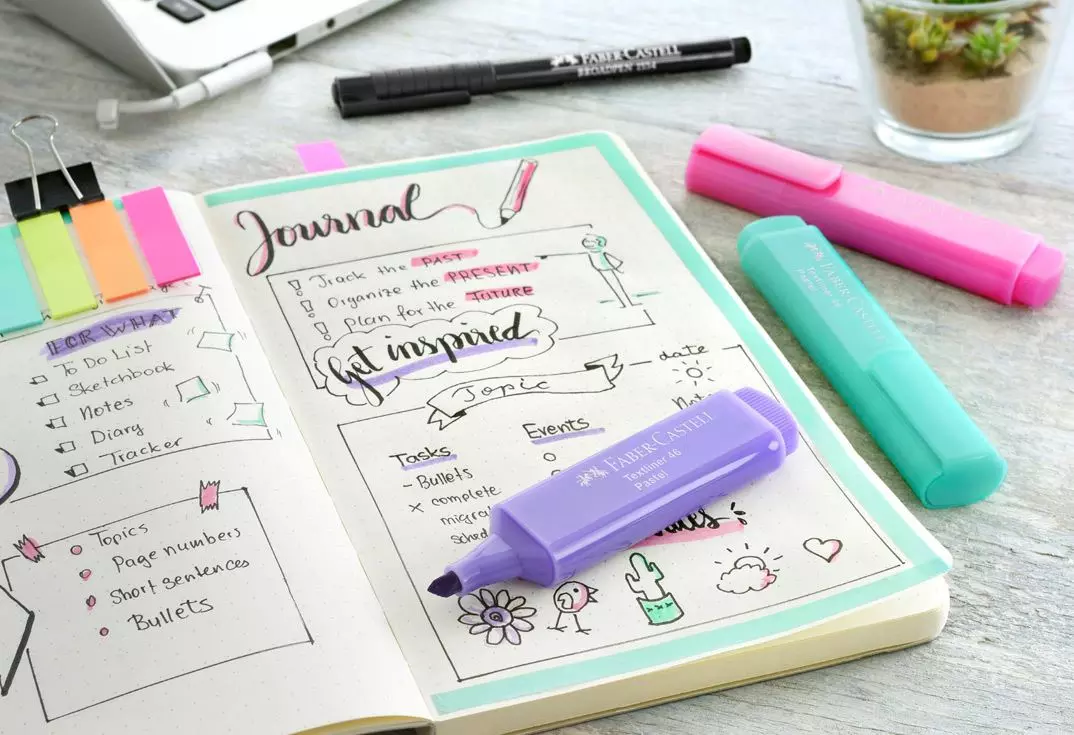 FABER-CASTELL
BROADPEN 1554
FOR WHAT
To Do List
Sketchbook
Notes
Diary
Tracker
Topics
Page numbers
Short sentences
Bullets
Journal
Track the PAST
Organize the PRESENT
Plan for the FUTURE
Get inspired
Topic
date
Tasks
Events
- Bullets
× complete
FABER-CASTELL
Textliner 46
Pastel
FABER-CASTELL
Textliner 46
Pastel